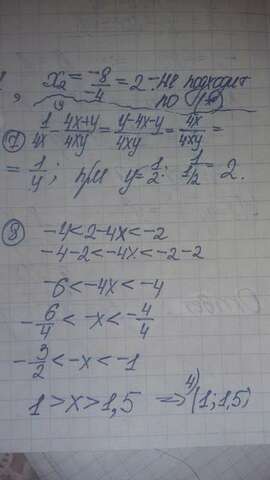 x₂ = -8/-4 = 2 - не подходит
по
7) 1/4x - 4x+y/4xy = y-4x-y/4xy = 4x/4xy =
= 1/y; при y=1/2: 1/1/2 = 2.
8) -4<2-4x<-2
-4-2<-4x<-2-2
-6<-4x<-4
-6/4<-x<-4/4
-3/2<-x<-1
1>x>1,5 => 4) (1; 1,5)